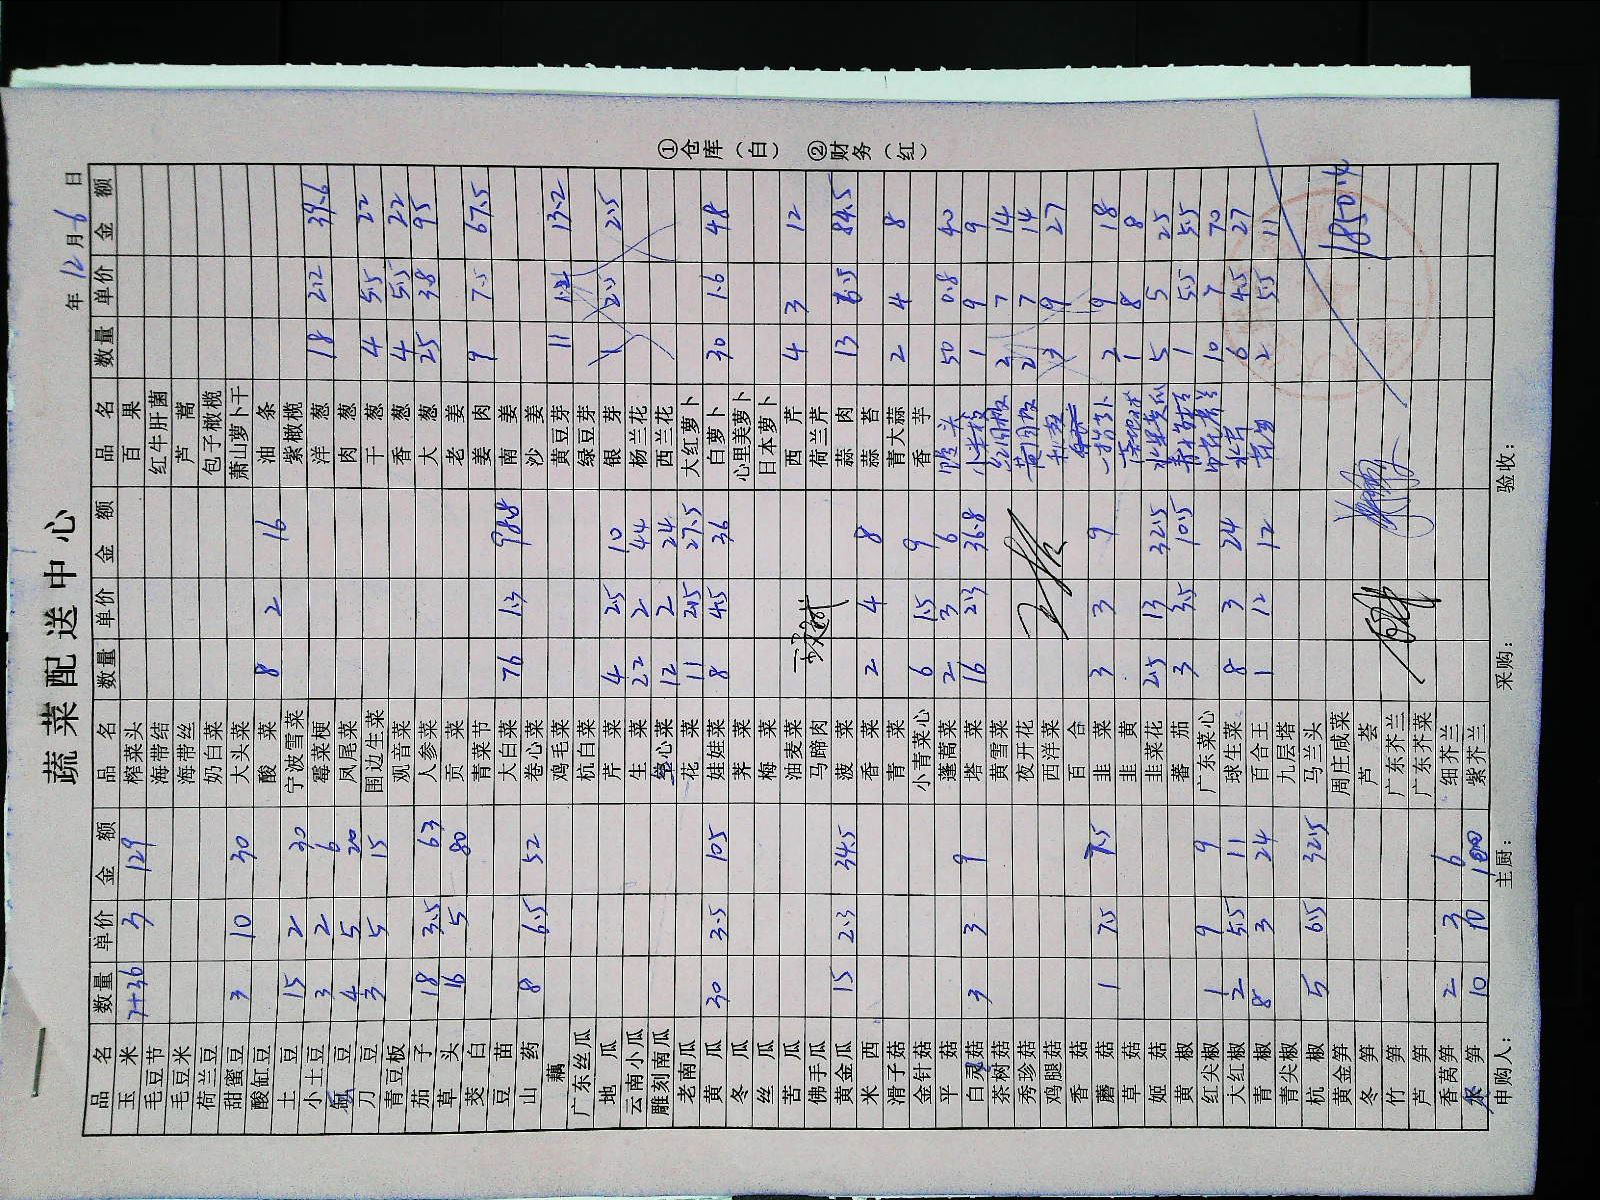 蔬菜配送中心
年 12 月 6 日
品名 数量 单价 金额 品名 数量 单价 金额 品名 数量 单价 金额
玉米 7+36 3 129 榨菜头 百果
毛豆节 海带结 红牛肝菌
毛豆米 海带丝 芦蒿
荷兰豆 奶白菜 包子橄榄
甜蜜豆 3 10 30 大头菜 萧山萝卜干
酸缸豆 酸菜 8 2 16 油条
土豆 15 2 30 宁波雪菜 紫橄榄
小土豆 3 2 6 霉菜梗 洋葱 18 2.2 39.6
豆 4 5 20 凤尾菜 肉葱
刀豆 3 5 15 围边生菜 干葱 4 5.5 22
青豆板 观音菜 香葱 4 5.5 22
茄子 18 3.5 63 人参菜 大葱 25 3.8 95
草头 16 5 80 贡菜 老姜
茭白 青菜节 姜肉 9 7.5 67.5
豆苗 大白菜 76 1.3 98.8 南姜
山药 8 6.5 52 卷心菜 沙姜
藕 鸡毛菜 黄豆芽 11 1.2 13.2
广东丝瓜 杭白菜 绿豆芽
地瓜 芹菜 4 2.5 10 银芽 1 2.5 2.5
云南小瓜 生菜 22 2 44 杨兰花
雕刻南瓜 空心菜 12 2 24 西兰花
老南瓜 花菜 11 2.5 27.5 大红萝卜
黄瓜 30 3.5 105 娃娃菜 8 4.5 36 白萝卜 30 1.6 48
冬瓜 荠菜 心里美萝卜
丝瓜 梅菜 日本萝卜
苦瓜 油麦菜 西芹 4 3 12
佛手瓜 马蹄肉 荷兰芹
黄金瓜 15 2.3 34.5 菠菜 蒜肉 13 6.5 84.5
米西 香菜 2 4 8 蒜苔
滑子菇 青菜 青大蒜 2 4 8
金针菇 小青菜心 6 1.5 9 香芋
平菇 蓬蒿菜 2 3 6 50 0.8 40
白灵菇 3 3 9 塔菜 16 2.3 36.8 小米椒 1 9 9
茶树菇 黄雪菜 红圆椒 2 7 14
秀珍菇 夜开花 黄圆椒 2 7 14
鸡腿菇 西洋菜 3 9 27
香菇 百合
蘑菇 1 7.5 7.5 韭菜 3 3 9 2 9 18
草菇 韭黄 1 8 8
姬菇 韭菜花 2.5 13 32.5 5 5 25
黄椒 蕃茄 3 3.5 10.5 1 5.5 5.5
红尖椒 1 9 9 广东菜心 10 7 70
大红椒 2 5.5 11 球生菜 8 3 24 水芹 6 4.5 27
青椒 8 3 24 百合王 1 12 12 2 5.5 11
青尖椒 九层塔
杭椒 5 6.5 32.5 马兰头
黄金笋 周庄咸菜
冬笋 芦荟 1850.4
竹笋 广东芥兰
芦笋 广东芥菜
香莴笋 2 3 6 细芥兰
笋 10 10 100 紫芥兰
申购人： 主厨： 采购： 验收：
①仓库（白） ②财务（红）